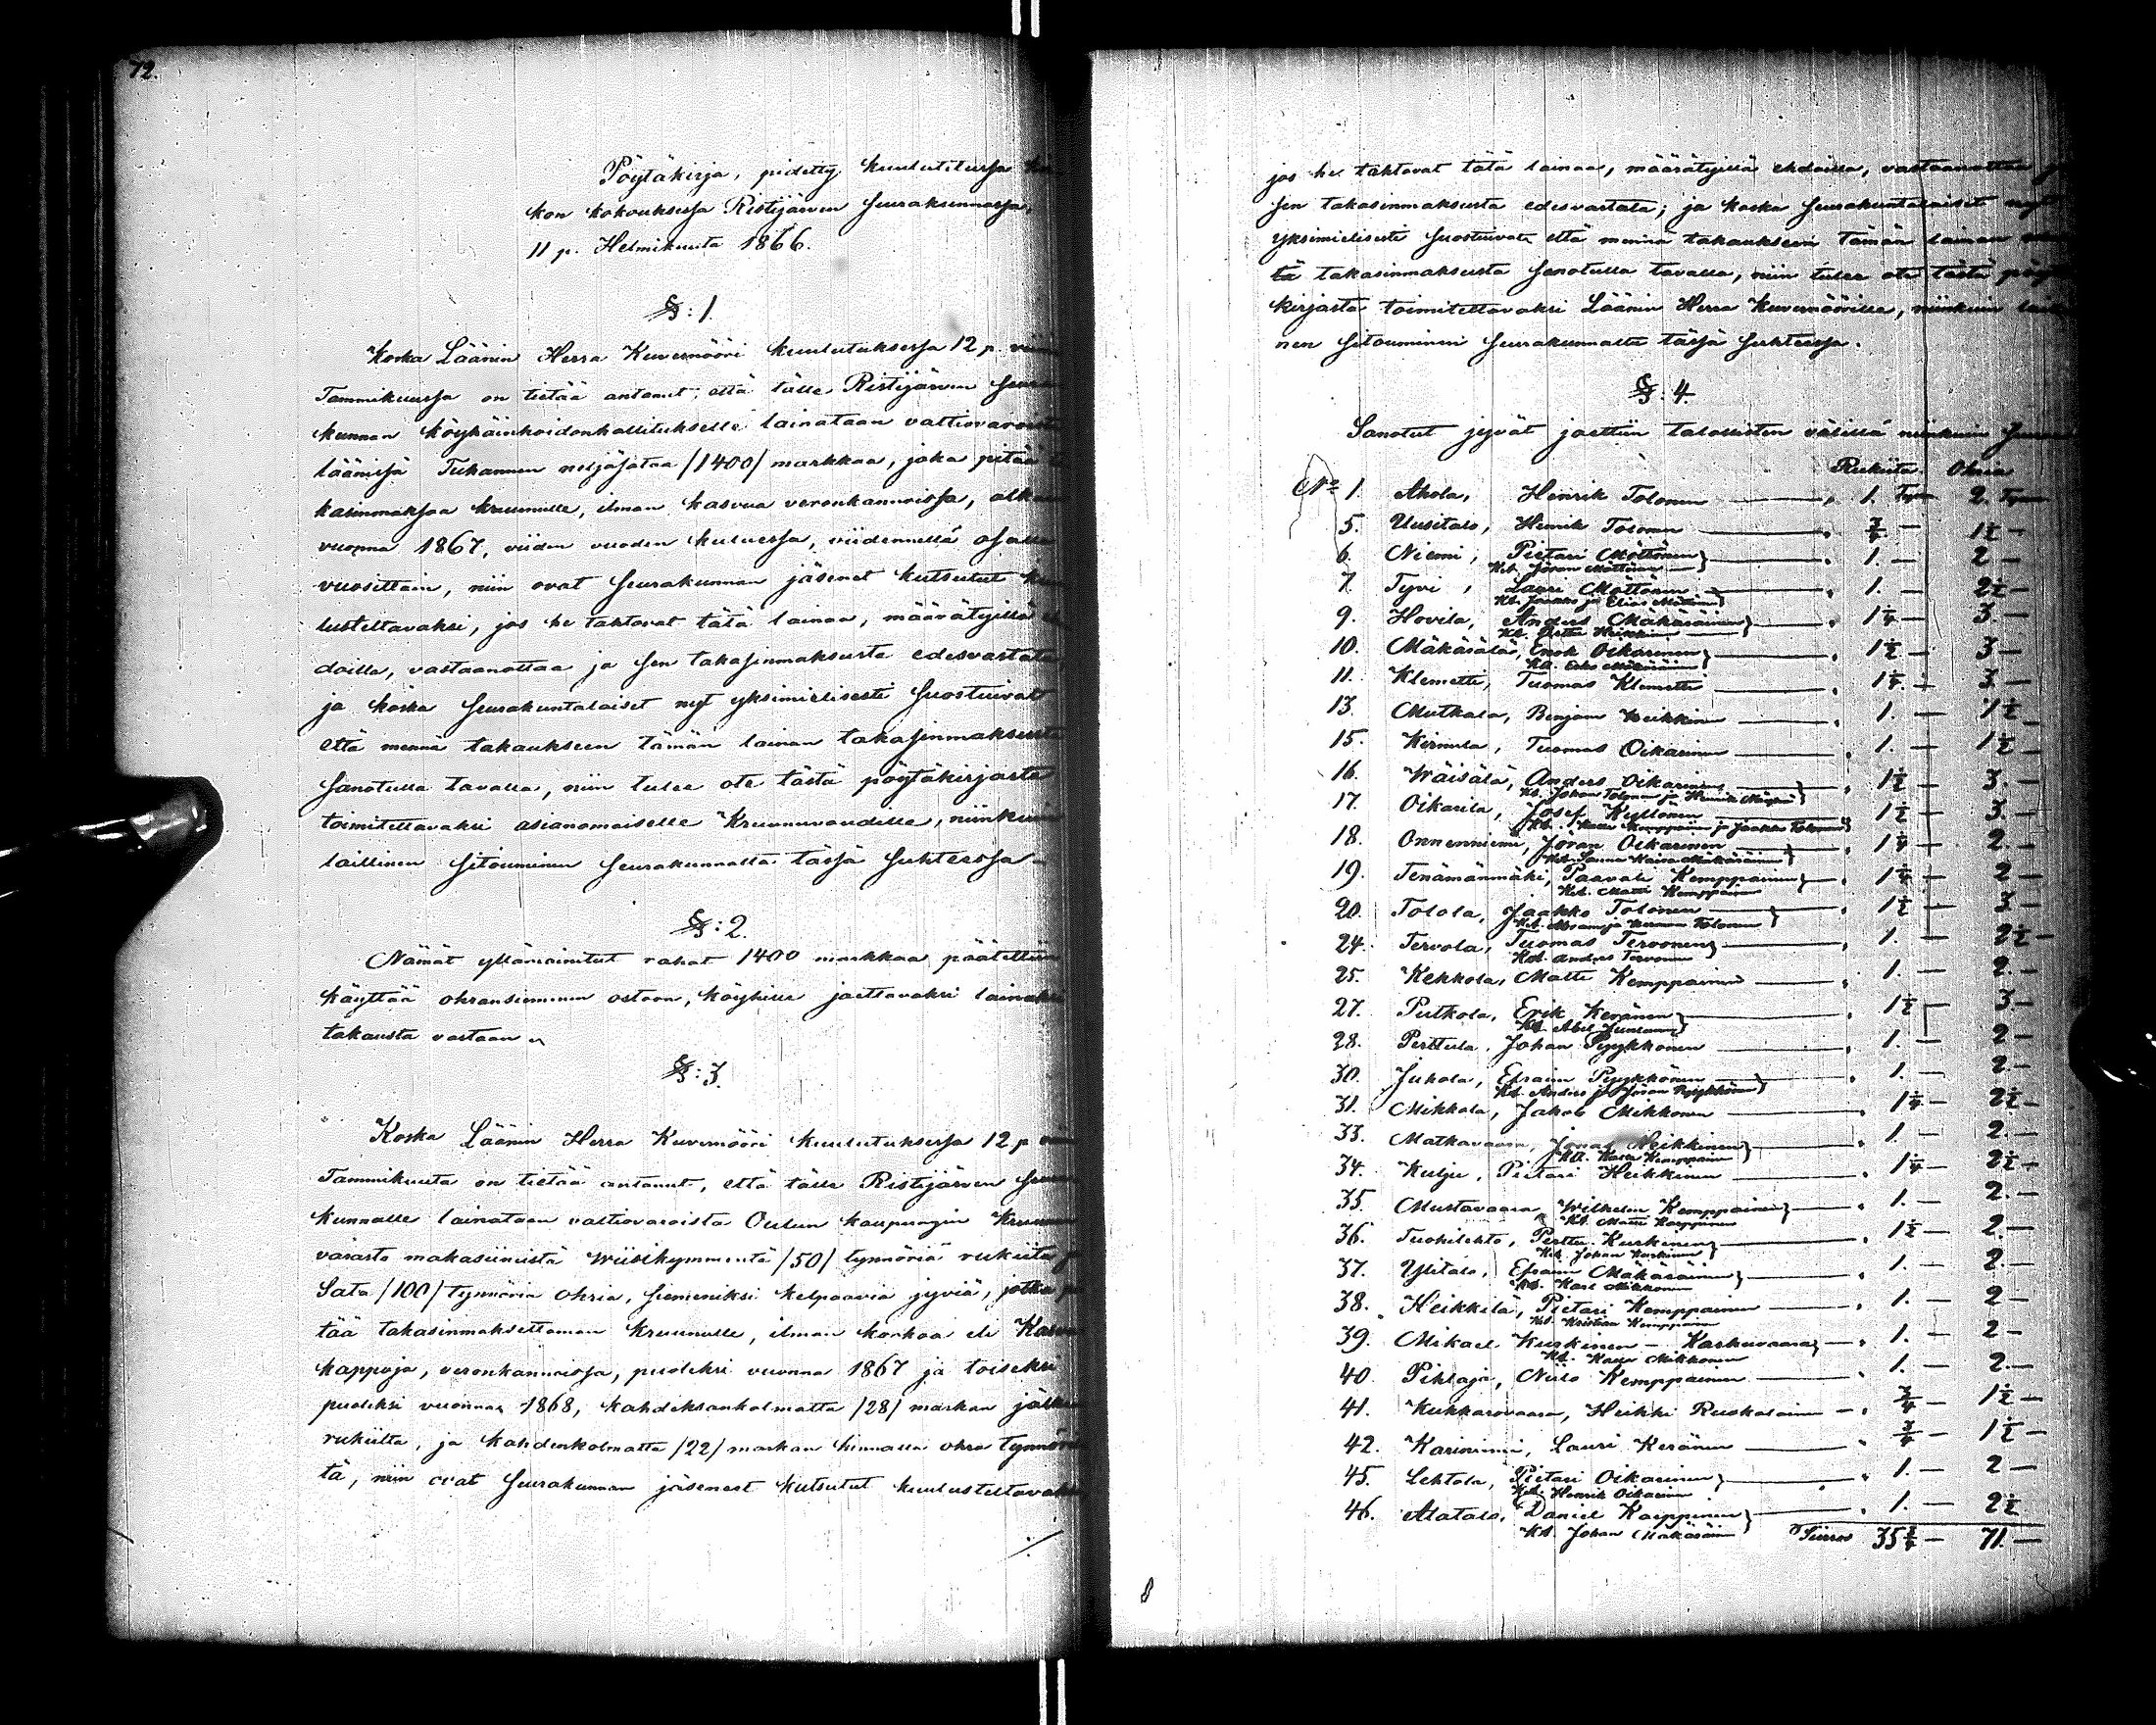 72.
Pöytäkirja, pidetty kuulutetussa
kon kokouksessa Ristijärven seurakunnassa,
11 p. Helmikuuta 1866.
§: 1.
Koska Läänin Herra Kuvernööri kuulutuksessa 12 p.
Tammikuussa on tietää antanut, että tälle Ristijärven
kunnan köyhäinhoidonhallitukselle lainataan valtiovaroista
läänissä Tuhannen neljäsataa /1400/ markkaa, joka pitää
kasinmaksaa kruunulle, ilman kasvua veronkannoissa,
vuonna 1867, viiden vuoden kuluessa, viidennellä osalla
vuosittain, niin ovat seurakunnan jäsenet kutsutut
lusteltavaksi, jos he tahtovat tätä lainaa, määrätyillä
doilla, vastaanottaa ja sen takasinmaksusta edesvastata
ja koska seurakuntalaiset nyt yksimielisesti suostuivat
että mennä takaukseen tämän lainan takasinmaksusta
sanotulla tavalla, niin tulee ote tästä pöytäkirjasta
toimitettavaksi asianomaiselle Kruununvoudille, niinkuin
laillinen sitouminen seurakunnalta tässä suhteessa -
§: 2.
Nämät yllämainitut rahat 1400 markkaa päätettiin
käyttää ohransiemenen ostoon, köyhille jaettavaksi lainaksi
takausta vastaan
§: 3.
Koska Läänin Herra Kuvernööri kuulutuksessa 12 p
Tammikuuta on tietää antanut, että tälle Ristijärven
kunnalle lainataan valtiovaroista Oulun kaupungin
varasto makasiinista wiisikymmentä /50/ tynnöriä rukiita
Sata /100/ tynnöriä ohria, siemeniksi kelpaavia jyviä, jotka
tää takasinmaksettaman kruunulle, ilman korkoa eli
kappoja, veronkannoissa, puoleksi vuonna 1867 ja toiseksi
puoleksi vuonna 1868, kahdeksankolmatta /28/ markan
rukiilta, ja kahdenkolmatta /22/ markan hinnalla ohra
tä, niin ovat seurakunnan jäsenet kutsutut kuulusteltavaksi
jos he tahtovat tätä lainaa, määrätyillä ehdoilla, vastaanottaa
sen takasinmaksusta edesvastata; ja koska seurakuntalaiset
yksimielisesti suostuivat että mennä takaukseen tämän lainan
tä takasinmaksusta sanotulla tavalla, niin tulee ote tästä
kirjasta toimitettavaksi Läänin Herra Kuvernöörille, niinkuin
nen sitouminen seurakunnalta tässä suhteessa.
§: 4.
Sanotut jyvät jaettiin talollisten välillä niinkuin
Rukiita Ohria
No 1. Ahola, Henrik Tolonen 1. Tyn 2. Tyn
5. Uusitalo, Henrik Tolonen 3/4 - 1 1/2 -
6. Niemi, Pietari Möttönen 1. - 2 -
Kl. Jöran Möttönen
7. Tyvi, Lauri Möttönen 1. - 2 1/2 -
Kl. Jaakko ja Elias
9. Hovila, Anders Mäkäräinen 1 1/4 - 3. -
10. Mäkäsälä, Enok Oikarinen 1 1/2 - 3 -
11. Klemetti, Tuomas Klemetti 1 1/4 - 3 -
13. Mutkala, Benjam Heikkinen 1. - 1 1/2 -
15. Tuomas Oikarinen 1. - 1 1/2 -
16. Wäisälä, Anders Oikarinen 1 1/2 - 3. -
Kl. Johan Tolonen ja Henrik
17. Oikarila, Josef Kyllönen 1 1/2 - 3. -
Kl. Kemppainen ja Jaakko Tolonen
18. Onnenniemi, Jöran Oikarinen 1 1/4 - 2. -
19. Tenämänmäki, Paavali Kemppainen 1 1/4 - 2 -
Kl. Matti Kemppainen
20. Tolola, Jaakko Tolonen 1 1/2 - 3 -
24. Tervola, Tuomas Tervonen 1. - 2 1/2 -
Kl. Anders Tervonen
25. Kekkola, Matti Kemppainen 1. - 2. -
27. Putkola, Erik Keränen 1 1/2 - 3. -
Kl. Abel Juntunen
28. Perttula, Johan Pyykkönen 1. - 2 -
30. Juhola, Efraim Pyykkönen 1. - 2. -
Kl. Anders ja Jöran Pyykkönen
31. Mikkola, Jakob Mikkonen 1 1/4 - 2 1/2 -
33. Matkavaara, Jonas Heikkinen 1. - 2. -
Kl. Kalle Kemppainen
34. Kulju, Pietari Heikkinen 1 1/4 - 2 1/2 -
35. Mustavaara, Wilhelm Kemppainen 1. - 2. -
Kl. Matti
36. Tuohilehto, Perttu Kurkinen 1 1/2 - 2. -
Kl. Johan Kurkinen
37. Ylitalo, Efraim Mäkäräinen 1. - 2. -
Kl. Karl Mikkonen
38. Heikkilä, Pietari Kemppainen 1. - 2 -
Kl. Kristian Kemppainen
39. Mikael Kurkinen - Karhuvaara 1. - 2 -
Kl. Kalle Mikkonen
40. Pihlaja, Niilo Kemppainen 1. - 2. -
41. Kukkarovaara, Heikki Ruskolainen 3/4 - 1 1/2 -
42. Kariniemi, Lauri Keränen 3/4 - 1 1/2 -
45. Lehtola, Pietari Oikarinen 1. - 2 -
Kl. Henrik Oikarinen
46. Alatalo, Daniel Karppinen 1. - 2 1/2
Kl. Johan Mäkäräinen Siirros 35 3/4 - 71. -